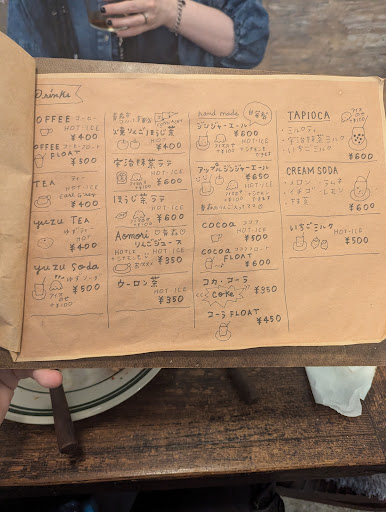 Drinks
OFFEE コーヒー
HOT・ICE
¥400
OFFEE
FLOAT
¥500
TEA ティー
HOT・ICE
¥400
YUZU TEA
ゆずティー
HOT
¥400
yuzu Soda
ゆずソーダ
アイス
+¥100
¥500
りんごほうじ茶
HOT
¥400
宇治抹茶ラテ
HOT・ICE
+¥100
¥600
ほうじ茶ラテ
HOT・ICE
+¥100
¥600
Aomori
りんごジュース
HOT・ICE
¥350
ウーロン茶
HOT・ICE
¥350
hand made
自家製
ジンジャーエール
¥600
HOT・ICE
+¥100
アップルジンジャーエール
¥650
HOT・ICE
+¥100
cocoa ココア
HOT・ICE
¥500
cocoa ココアフロート
FLOAT
¥600
コカ・コーラ
Coke
¥350
コーラ FLOAT
¥450
TAPIOCA
アイス
+¥100
・ミルクティ
・宇治抹茶ミルク
・いちごミルク
¥600
CREAM SODA
・メロン
・イチゴ・レモン
¥600
いちごミルク
HOT・ICE
¥500